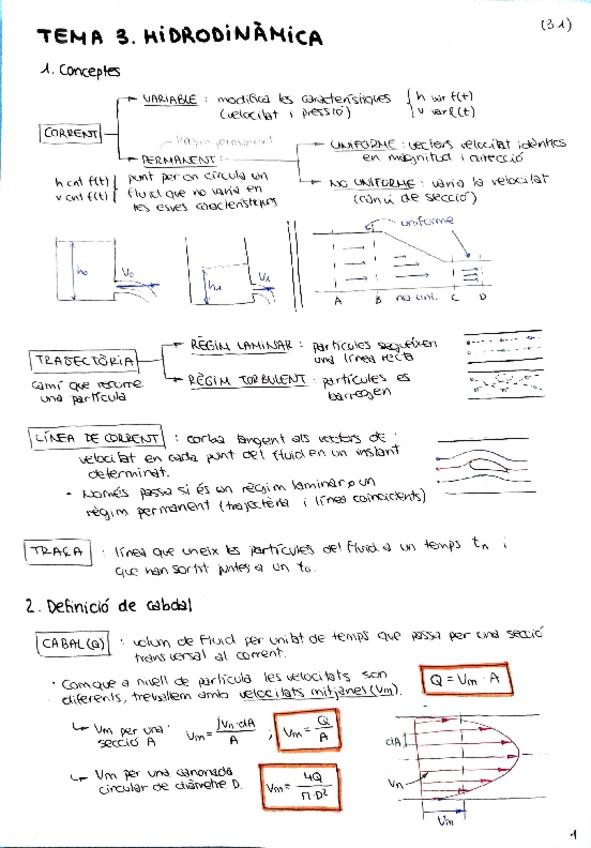 (31)
TEMA 3. HIDRODINÀMICA
1. Conceptes
CORRENT
VARIABLE : modifica les característiques
(velocitat i pressió)
h var f(t)
v var f(t)
Règim permanent
PERMANENT :
punt per on circula un
fluid que no varia en
les seves característiques
h cnt f(t)
v cnt f(t)
UNIFORME : vectors velocitat idèntics
en magnitud i direcció
NO UNIFORME : varia la velocitat
(canvi de secció)
uniforme
h₀ V₀ h₁ V₁
A B no uni. C D
TRAJECTÒRIA
camí que resume
una partícula
RÈGIM LAMINAR : partícules segueixen
una línea recta
RÈGIM TURBULENT : partícules es
barregen
LÍNEA DE CORRENT : corba tangent als vectors de
velocitat en cada punt del fluid en un instant
determinat.
· Només passa si és un règim laminar o un
règim permanent (trajectòria i línea coincidents)
TRAÇA : línea que uneix les partícules del fluid a un temps tn i
que han sortit juntes a un t₀.
2. Definició de cabdal
CABAL (Q) : volum de fluid per unitat de temps que passa per una secció
transversal al corrent.
· Com que a nivell de partícula les velocitats son
diferents, treballem amb velocitats mitjanes (Vm).
Q = Vm · A
↳ Vm per una
secció A
Vm = ∫Vn·dA / A ; Vm = Q / A
↳ Vm per una canonada
circular de diàmetre D.
Vm = 4Q / Π·D²
dA
Vn
Vm
1